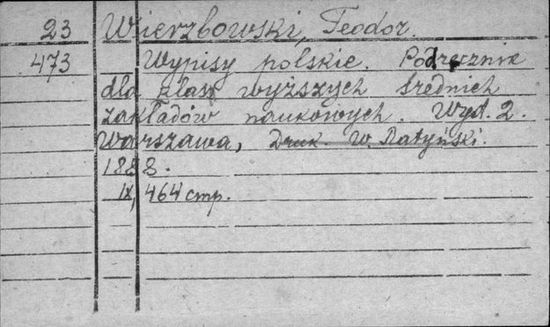 23 Wierzbowski, Teodor.
473 Wypisy polskie. Podręcznik
dla klas wyższych średnich
zakładów naukowych. Wyd. 2.
Warszawa, Druk. W. Ratyński.
1888.
IX, 464 стр.